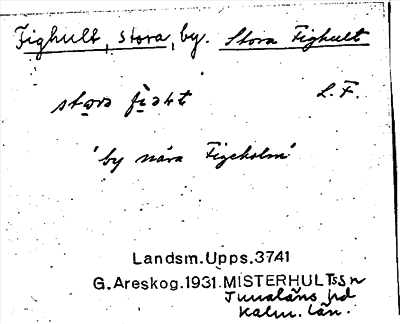 Fighult, stora, by. Stora Fighult
stora fiəłt L.F.
'by nära Figeholm'
Landsm.Upps.3741
G.Areskog.1931.MISTERHULTs sn
Tunaläns hd
Kalm. län.